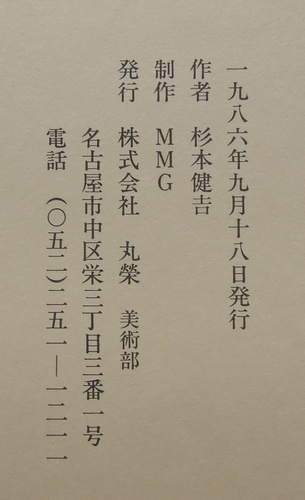 一九八六年九月十八日発行
作者 杉本健吉
制作 MMG
発行 株式会社 丸榮 美術部
名古屋市中区栄三丁目三番一号
電話 (〇五二)二五一―一二一一